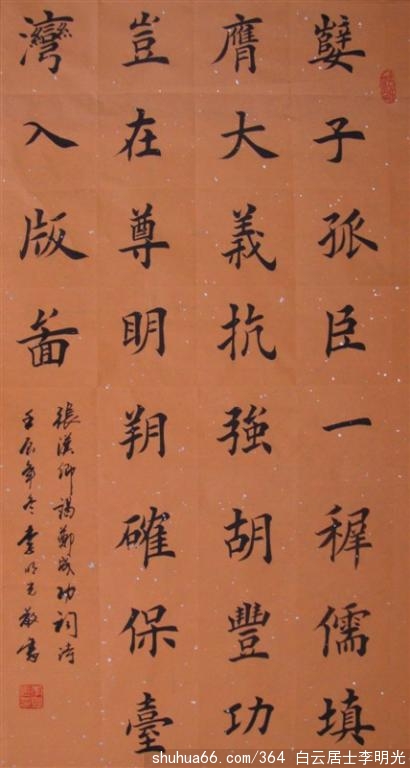 孽子孤臣一稺儒填
膺大義抗強胡豐功
豈在尊明朔確保臺
灣入版圖
張漢卿謁鄭成功祠詩
壬辰年冬李明光敬書
shuhua66.com/364 白云居士李明光